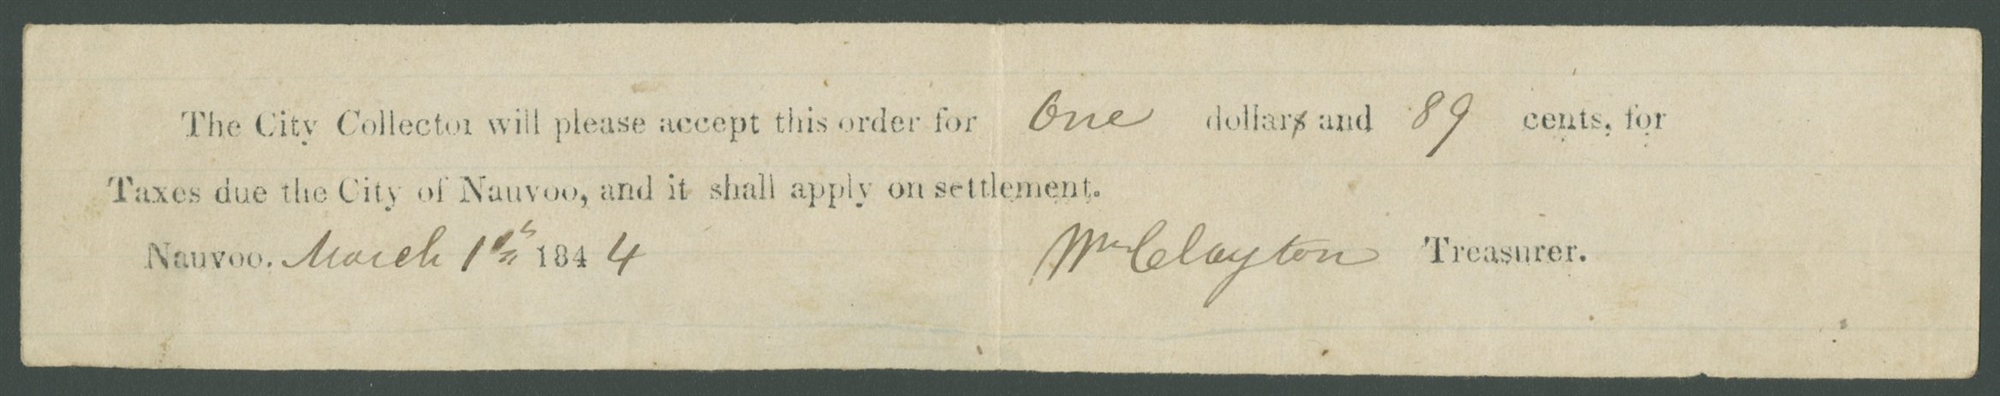 The City Collector will please accept this order for One dollars and 89 cents, for
Taxes due the City of Nauvoo, and it shall apply on settlement.
Nauvoo, March 1st 1844 Wm Clayton Treasurer.